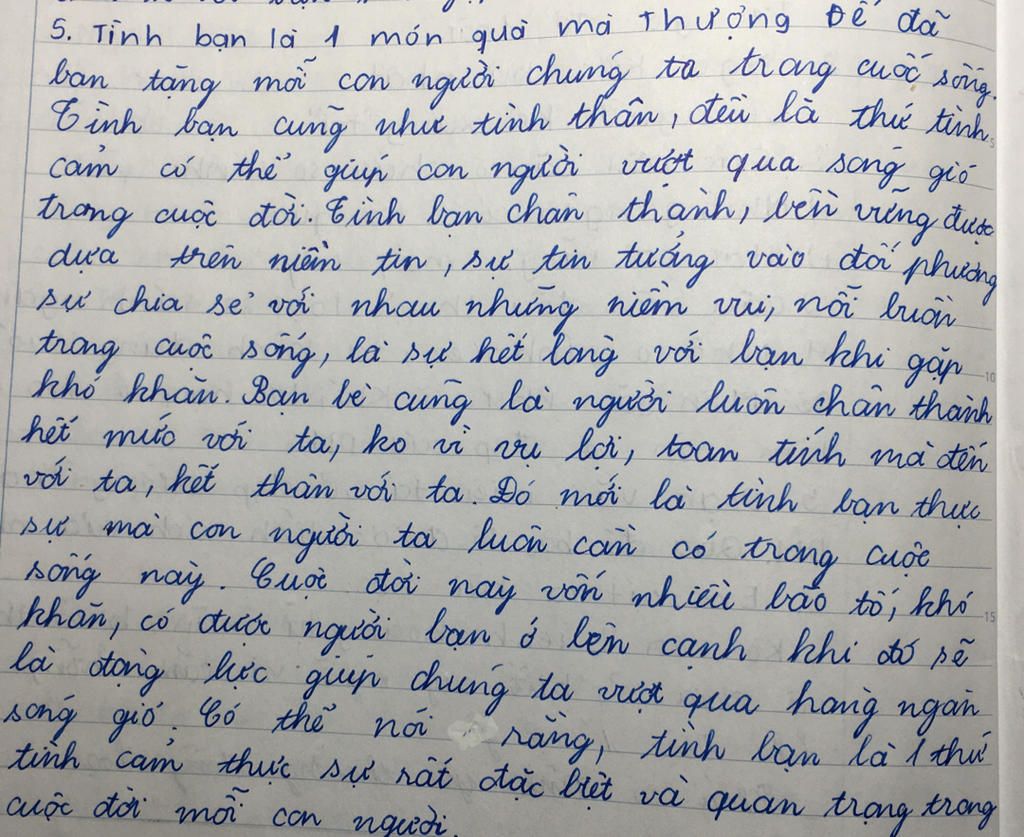 5. Tình bạn là 1 món quà mà Thượng Đế đã
ban tặng mỗi con người chúng ta trong cuộc sống.
Tình bạn cũng như tình thân, đều là thứ tình
cảm có thể giúp con người vượt qua sóng gió
trong cuộc đời. Tình bạn chân thành, bền vững được
dựa trên niềm tin, sự tin tưởng vào đối phương
sự chia sẻ với nhau những niềm vui, nỗi buồn
trong cuộc sống, là sự hết lòng với bạn khi gặp
khó khăn. Bạn bè cũng là người luôn chân thành
hết mức với ta, ko vì vụ lợi, toan tính mà đến
với ta, kết thân với ta. Đó mới là tình bạn thực
sự mà con người ta luôn cần có trong cuộc
sống này. Cuộc đời này vốn nhiều bão tố, khó
khăn, có được người bạn ở bên cạnh khi đó sẽ
là động lực giúp chúng ta vượt qua hàng ngàn
sóng gió. Có thể nói rằng, tình bạn là 1 thứ
tình cảm thực sự rất đặc biệt và quan trọng trong
cuộc đời mỗi con người.